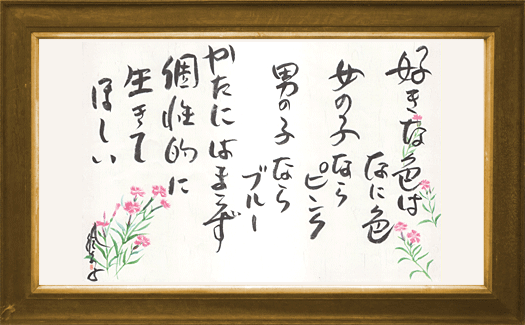 好きな色は
なに色
女の子なら
ピンク
男の子なら
ブルー
かたにはまらず
個性的に
生きて
ほしい